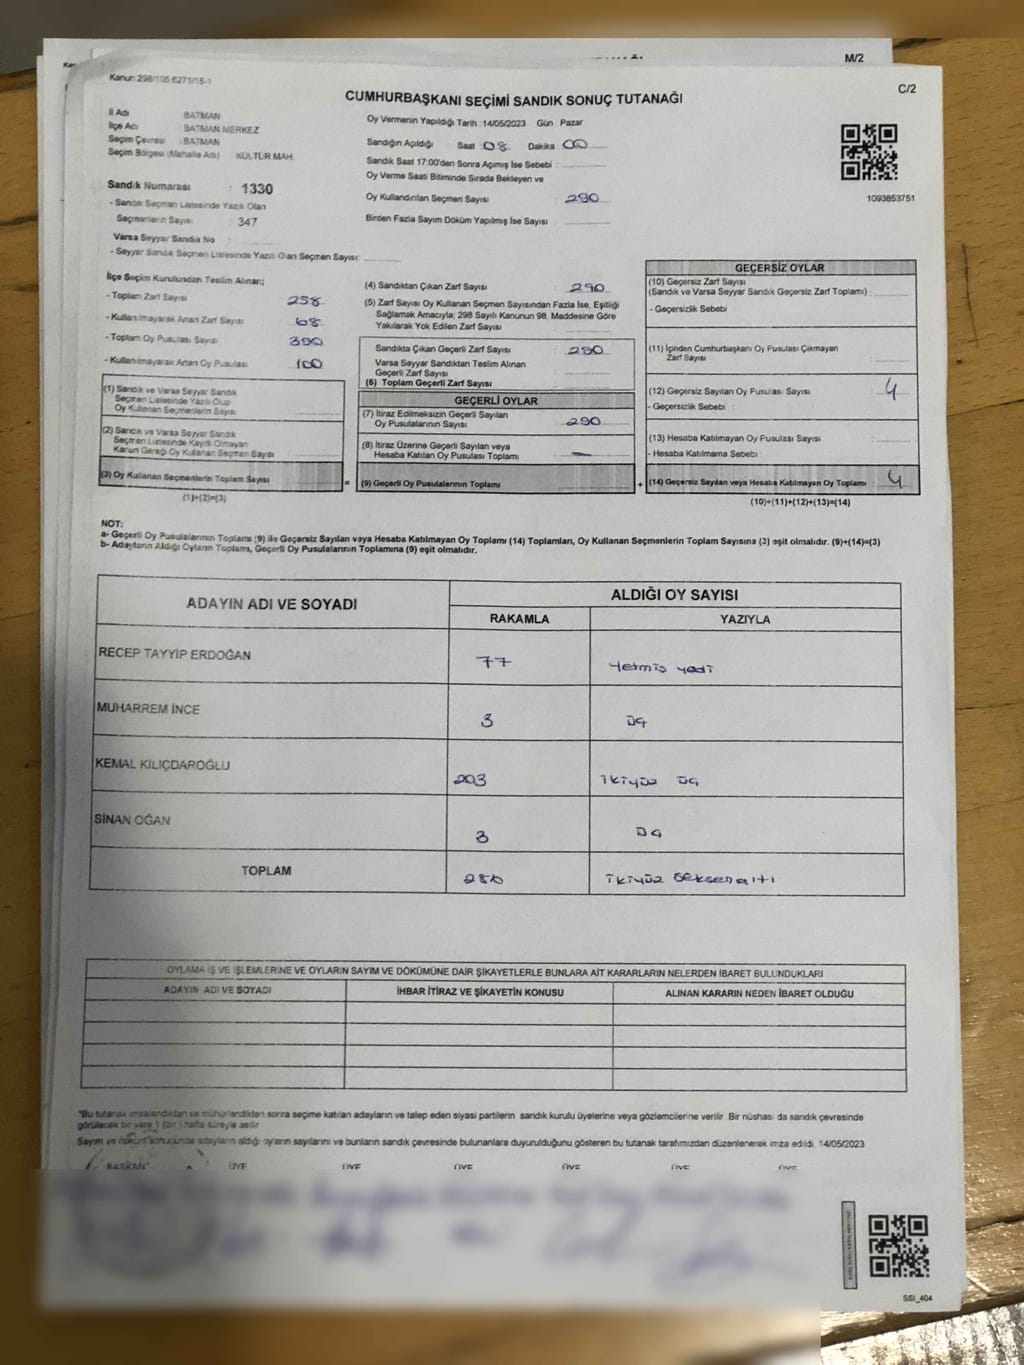 M/2
Kanun: 298/105,6271/18-1
C/2
CUMHURBAŞKANI SEÇİMİ SANDIK SONUÇ TUTANAĞI
İl Adı BATMAN
İlçe Adı BATMAN MERKEZ
Seçim Çevresi : BATMAN
Seçim Bölgesi (Mahalle Adı) KÜLTÜR MAH.
Sandık Numarası : 1330
- Sandık Seçmen Listesinde Yazılı Olan
Seçmenlerin Sayısı : 347
Varsa Seyyar Sandık No :
- Seyyar Sandık Seçmen Listesinde Yazılı Olan Seçmen Sayısı:
Oy Vermenin Yapıldığı Tarih : 14/05/2023 Gün : Pazar
Sandığın Açıldığı Saat : 08 Dakika : 00
Sandık Saat 17:00'den Sonra Açımış İse Sebebi :
Oy Verme Saati Bitiminde Sırada Bekleyen ve
Oy Kullandırılan Seçmen Sayısı : 290
Birden Fazla Sayım Döküm Yapılmış İse Sayısı :
1093853751
İlçe Seçim Kurulundan Teslim Alınan;
- Toplam Zarf Sayısı 258
- Kullanılmayarak Artan Zarf Sayısı 68
- Toplam Oy Pusulası Sayısı 390
- Kullanılmayarak Artan Oy Pusulası 100
(1) Sandık ve Varsa Seyyar Sandık
Seçmen Listesinde Yazılı Olup
Oy Kullanan Seçmenlerin Sayısı
(2) Sandık ve Varsa Seyyar Sandık
Seçmen Listesinde Kayıtlı Olmayan
Kanun Gereği Oy Kullanan Seçmen Sayısı
(3) Oy Kullanan Seçmenlerin Toplam Sayısı
(1)+(2)=(3)
(4) Sandıktan Çıkan Zarf Sayısı : 290
(5) Zarf Sayısı Oy Kullanan Seçmen Sayısından Fazla İse, Eşitliği
Sağlamak Amacıyla; 298 Sayılı Kanunun 98. Maddesine Göre
Yakılarak Yok Edilen Zarf Sayısı
Sandıkta Çıkan Geçerli Zarf Sayısı : 290
Varsa Seyyar Sandıktan Teslim Alınan
Geçerli Zarf Sayısı
(6) Toplam Geçerli Zarf Sayısı
GEÇERLİ OYLAR
(7) İtiraz Edilmeksizin Geçerli Sayılan
Oy Pusulalarının Sayısı : 290
(8) İtiraz Üzerine Geçerli Sayılan veya
Hesaba Katılan Oy Pusulası Toplamı : —
= (9) Geçerli Oy Pusulalarının Toplamı +
GEÇERSİZ OYLAR
(10) Geçersiz Zarf Sayısı
(Sandık ve Varsa Seyyar Sandık Geçersiz Zarf Toplamı) :
- Geçersizlik Sebebi
(11) İçinden Cumhurbaşkanı Oy Pusulası Çıkmayan
Zarf Sayısı
(12) Geçersiz Sayılan Oy Pusulası Sayısı : 4
- Geçersizlik Sebebi :
(13) Hesaba Katılmayan Oy Pusulası Sayısı
- Hesaba Katılmama Sebebi
(14) Geçersiz Sayılan veya Hesaba Katılmayan Oy Toplamı : 4
(10)+(11)+(12)+(13)=(14)
NOT:
a- Geçerli Oy Pusulalarının Toplamı (9) ile Geçersiz Sayılan veya Hesaba Katılmayan Oy Toplamı (14) Toplamları, Oy Kullanan Seçmenlerin Toplam Sayısına (3) eşit olmalıdır. (9)+(14)=(3)
b- Adayların Aldığı Oyların Toplamı, Geçerli Oy Pusulalarının Toplamına (9) eşit olmalıdır.
ADAYIN ADI VE SOYADI ALDIĞI OY SAYISI
RAKAMLA YAZIYLA
RECEP TAYYİP ERDOĞAN 77 Yetmiş yedi
MUHARREM İNCE 3 üç
KEMAL KILIÇDAROĞLU 203 ikiyüz üç
SİNAN OĞAN 3 üç
TOPLAM 286 ikiyüz seksenaltı
OYLAMA İŞ VE İŞLEMLERİNE VE OYLARIN SAYIM VE DÖKÜMÜNE DAİR ŞİKAYETLERLE BUNLARA AİT KARARLARIN NELERDEN İBARET BULUNDUKLARI
ADAYIN ADI VE SOYADI İHBAR İTİRAZ VE ŞİKAYETİN KONUSU ALINAN KARARIN NEDEN İBARET OLDUĞU
*Bu tutanak imzalandıktan ve mühürlendikten sonra seçime katılan adayların ve talep eden siyasi partilerin sandık kurulu üyelerine veya gözlemcilerine verilir. Bir nüshası da sandık çevresinde
görülecek bir yere 1 (bir) hafta süreyle asılır.
Sayım ve döküm sonucunda adayların aldığı oyların sayılarını ve bunların sandık çevresinde bulunanlara duyurulduğunu gösteren bu tutanak tarafımızdan düzenlenerek imza edildi. 14/05/2023
BAŞKAN ÜYE ÜYE ÜYE ÜYE ÜYE ÜYE
SSI_404